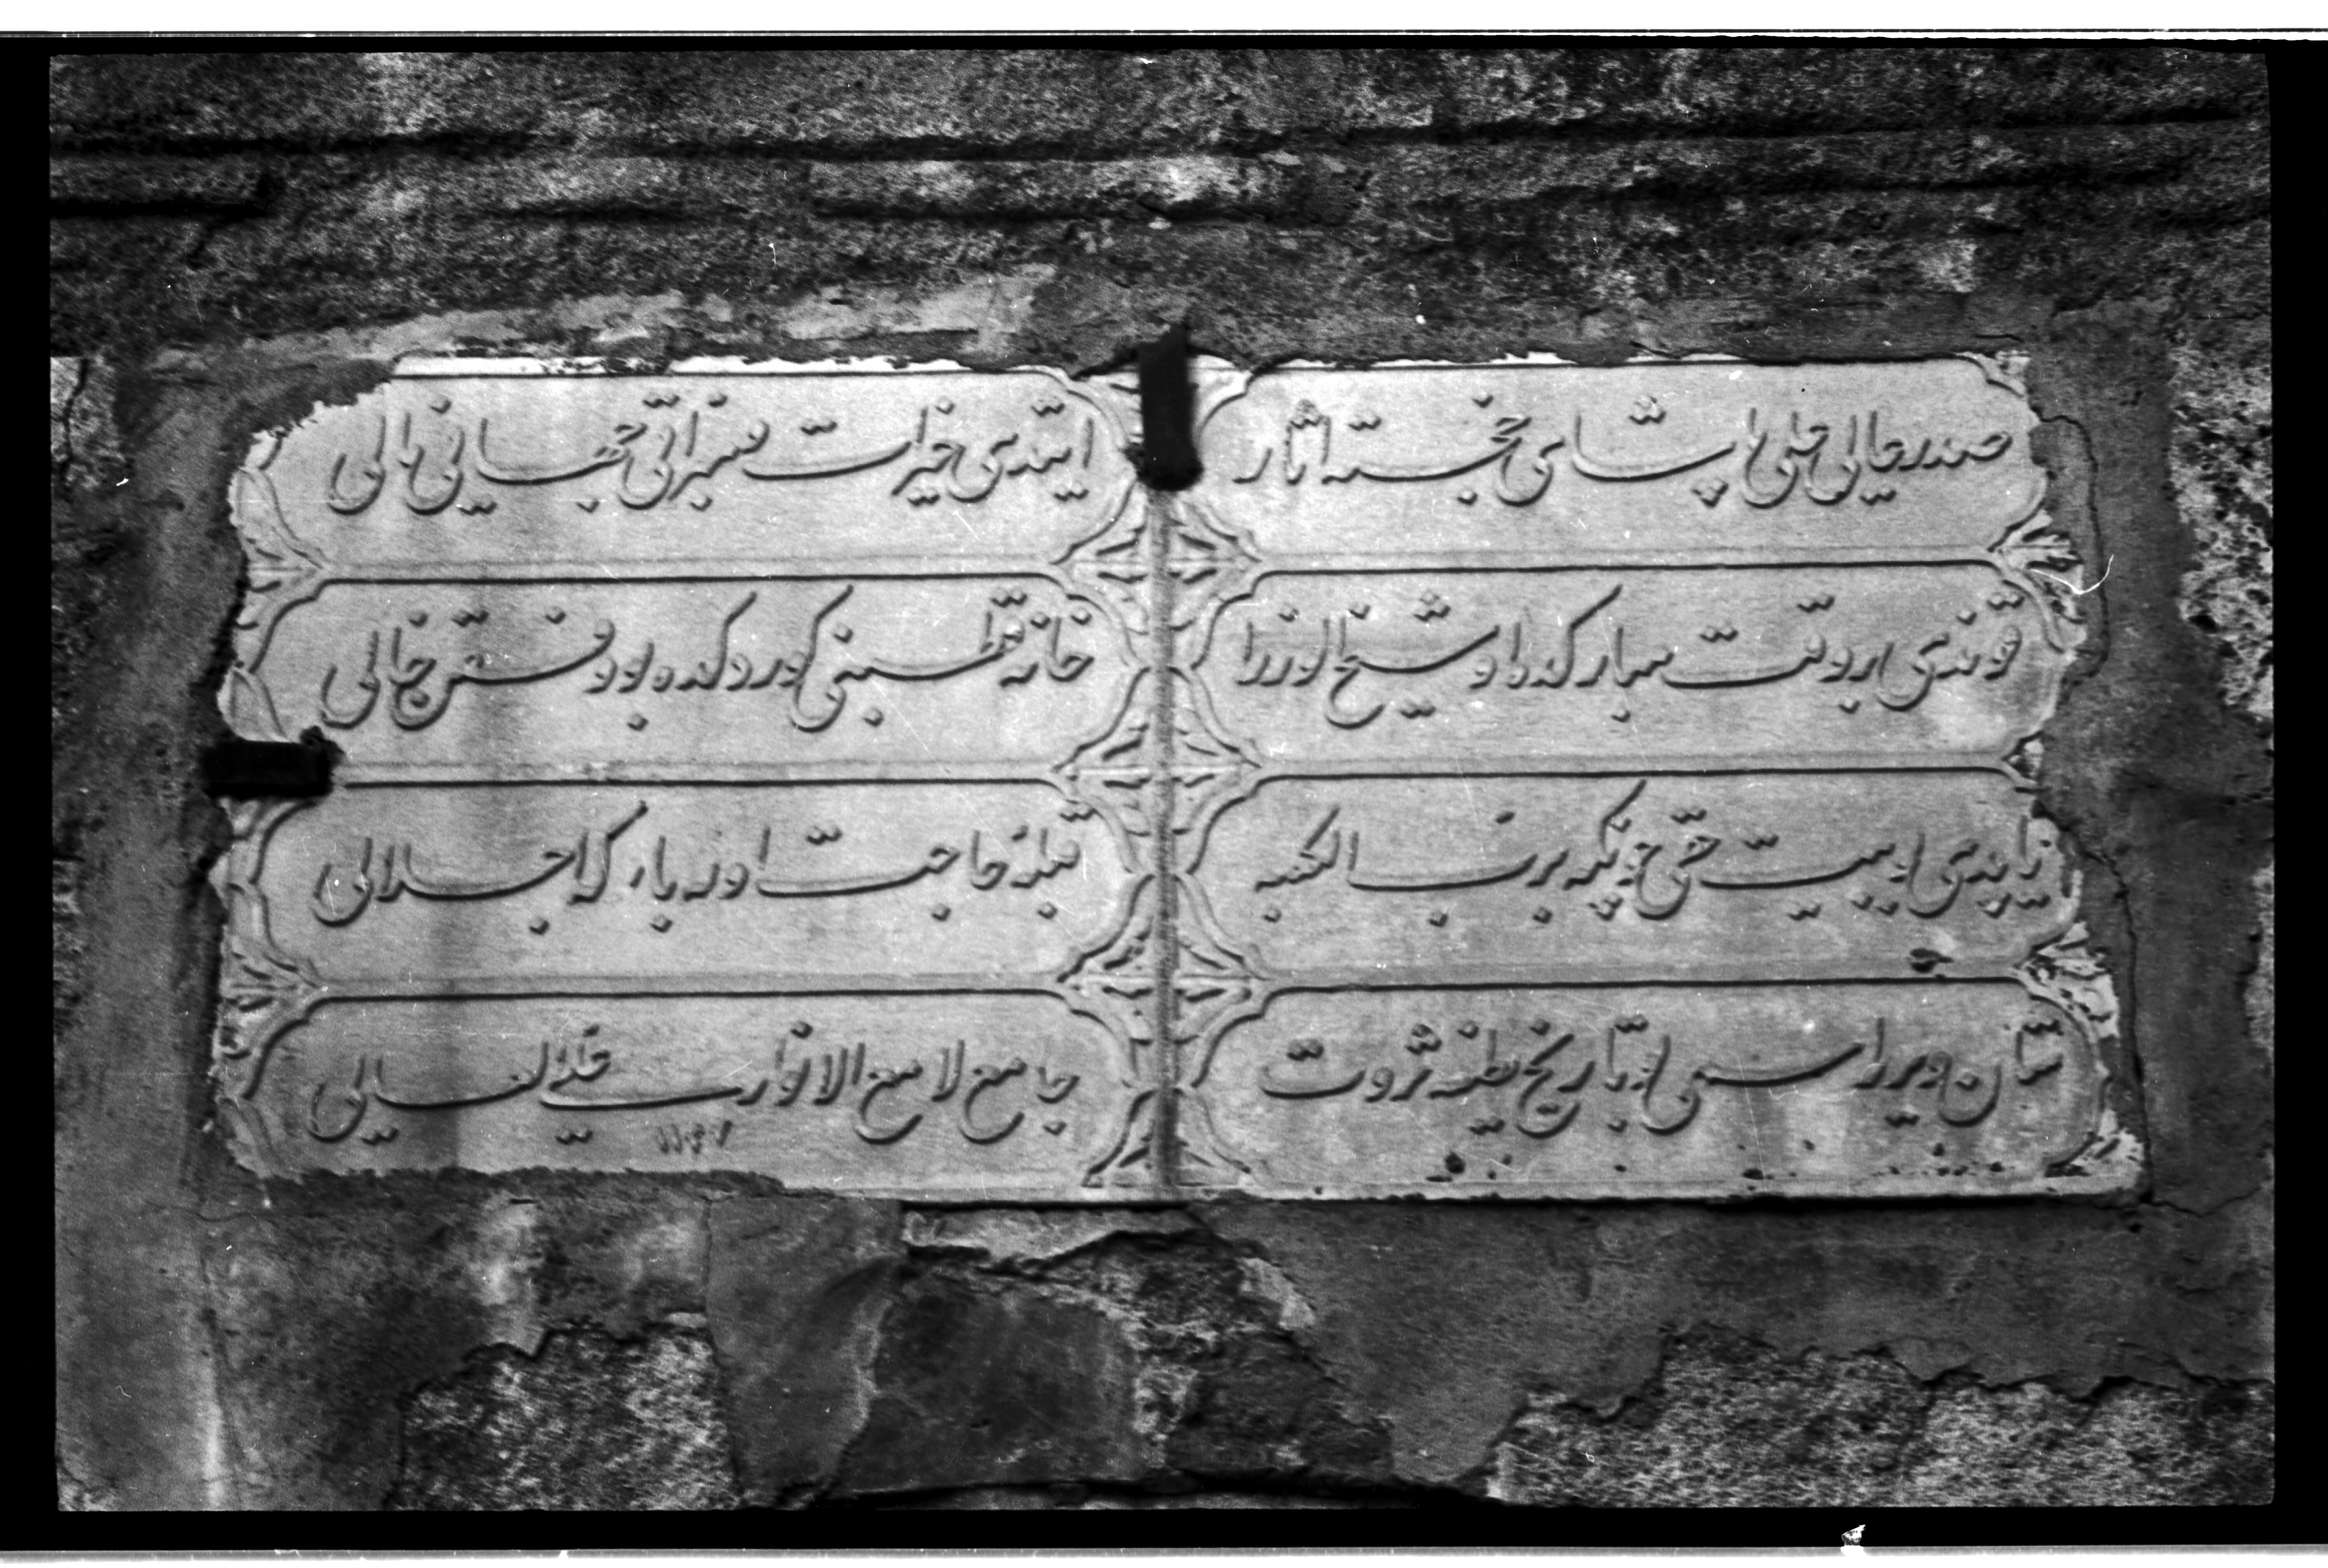 صدر عالی علی پاشای خجسته اثار
ایتدی خیرات مبراتی جهانی مالی
قوندی بر وقت مبارکده او شیخ الوزرا
خانه قطبنی کوردکده بو خالی
یاپدی بو بیت حقی چونکه برب الکعبه
قبلهٔ حاجت اوله بارکه اجلالی
شان ویرر اسمی تاریخ لطیفه ثروت
جامع لامع الانوار علی